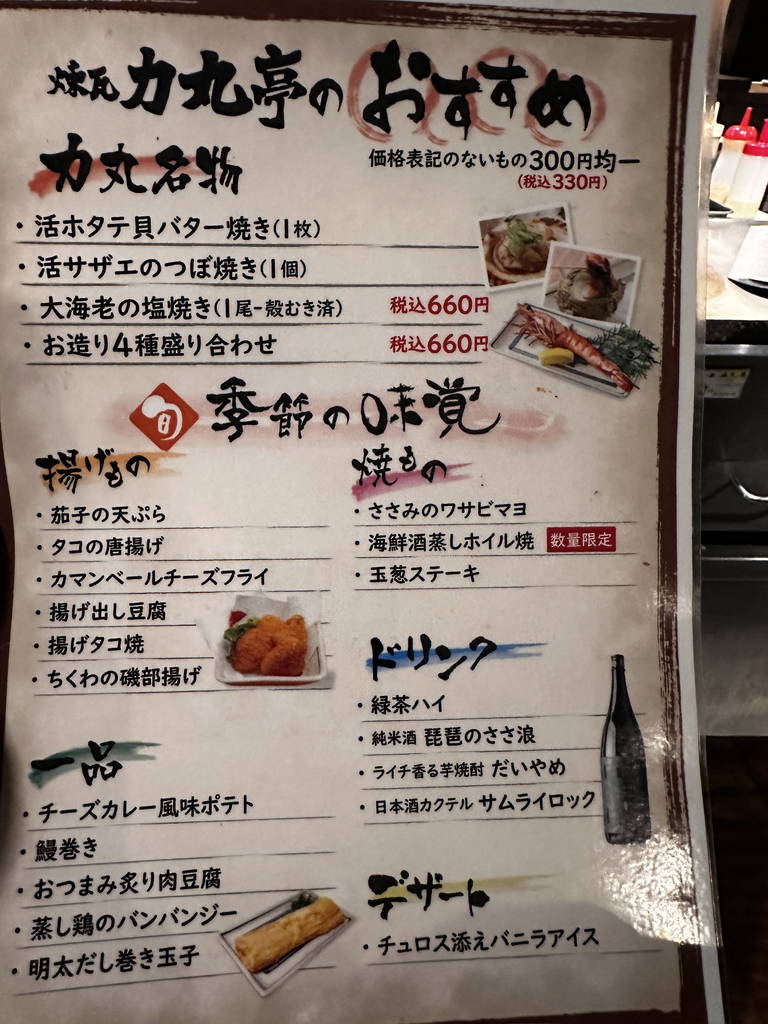 煉瓦 力丸亭のおすすめ
価格表記のないもの300円均一
(税込330円)
力丸名物
・活ホタテ貝バター焼き(1枚)
・活サザエのつぼ焼き(1個)
・大海老の塩焼き(1尾-殻むき済) 税込660円
・お造り4種盛り合わせ 税込660円
旬 季節の味覚
揚げもの
・茄子の天ぷら
・タコの唐揚げ
・カマンベールチーズフライ
・揚げ出し豆腐
・揚げタコ焼
・ちくわの磯部揚げ
焼もの
・ささみのワサビマヨ
・海鮮酒蒸しホイル焼 数量限定
・玉葱ステーキ
ドリンク
・緑茶ハイ
・純米酒 琵琶のささ浪
・ライチ香る芋焼酎 だいやめ
・日本酒カクテル サムライロック
一品
・チーズカレー風味ポテト
・鰻巻き
・おつまみ炙り肉豆腐
・蒸し鶏のバンバンジー
・明太だし巻き玉子
デザート
・チュロス添えバニラアイス